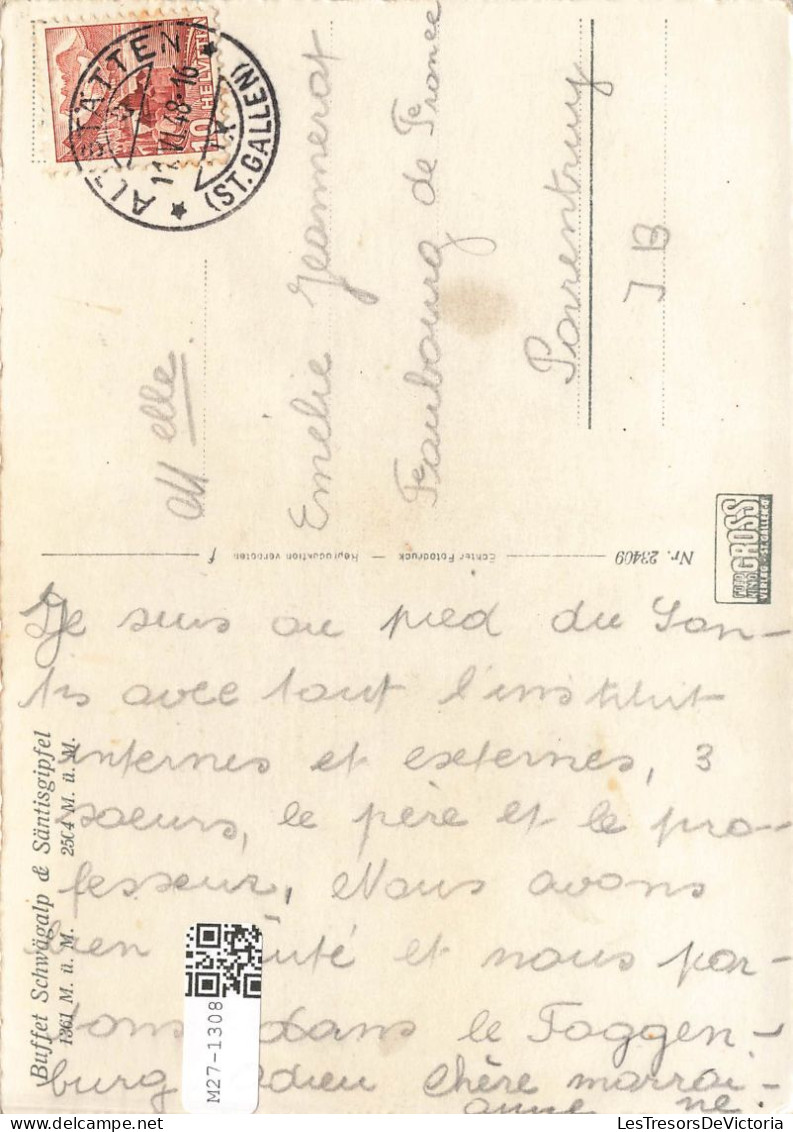 ALTSTÄTTEN
(ST. GALLEN)
11.VI.48-16
IX
HELVETIA
10
Mlle
Emélie Jeannerat
Faubourg de France
Porrentruy
J B
Echter Fotodruck — Reproduktion verboten
Nr. 23409
f
GROSS
VERLAG ST. GALLEN
Je suis au pied du San-
tis avec tout l'institut
internes et externes, 3
soeurs, le père et le pro-
fesseur, Nous avons
bien et nous par-
tons dans le Toggen-
burg Adieu chère marrai-
ne.
anne
Buffet Schwägalp & Säntisgipfel
1361 M. ü. M. 2504 M. ü. M.
M27-1308
LesTresorsDeVictoria